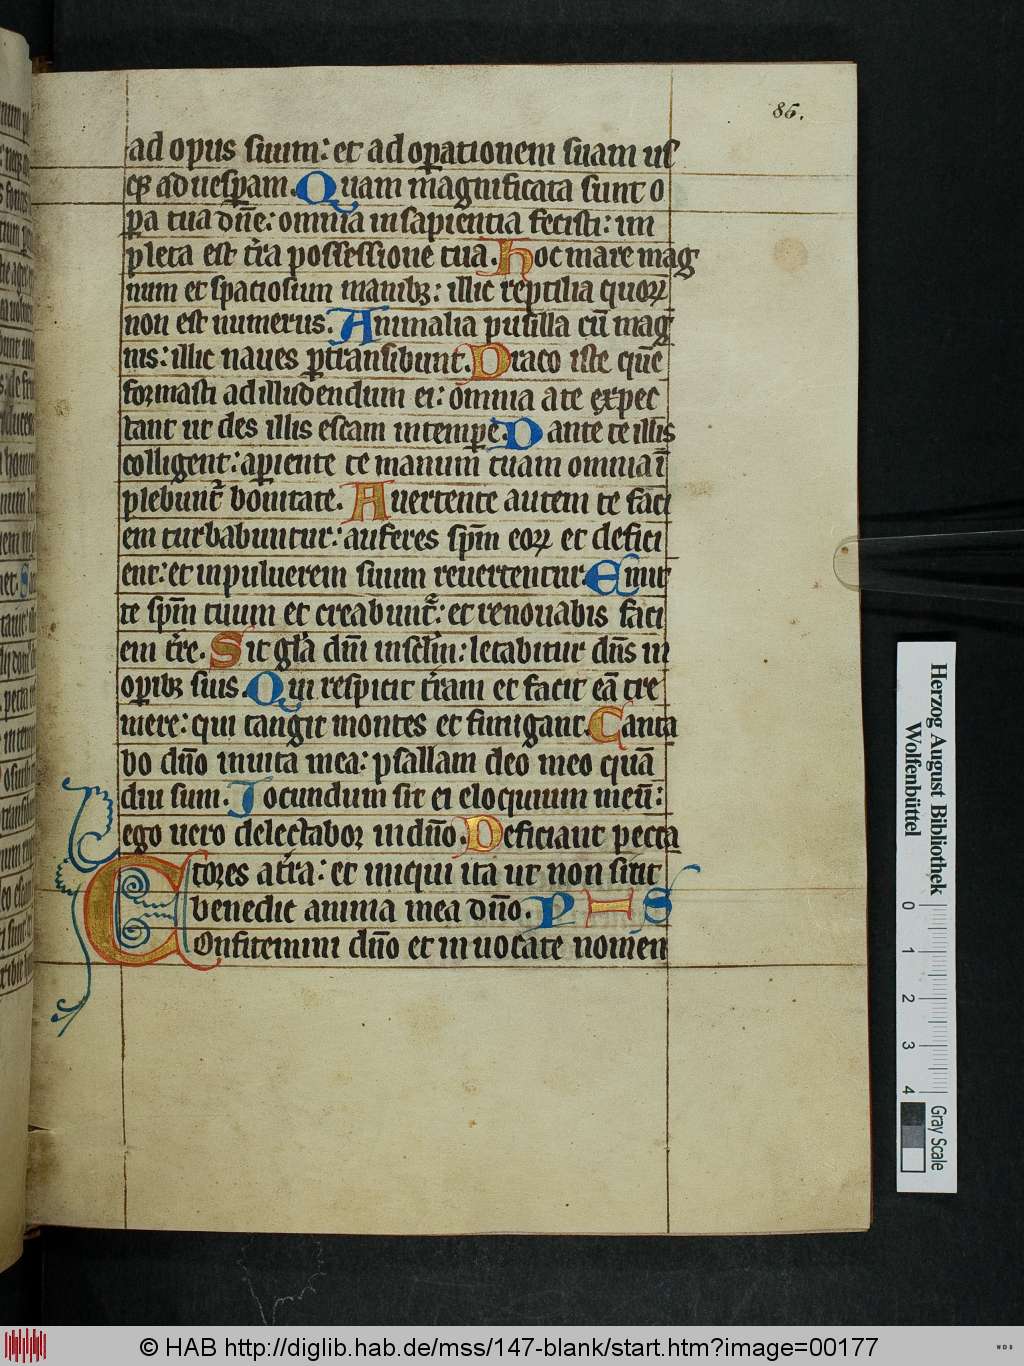 85.
ad opus suum: et ad oꝑationem suam us
qꝫ ad uesꝑam. Quam magnificata sunt o
ꝑa tua dn̄e: omnia in sapientia fecisti: im
pleta est t̄ra possessione tua. Hoc mare mag
num et spaciosum manibꝫ: illic reptilia quoꝝ
non est numerus. Animalia pusilla cū mag
nis: illic naues ꝑtransibunt. Draco iste quē
formasti ad illudendum ei: omnia a te expec
tant ut des illis escam in tempe. Dante te illis
colligent: aꝑiente te manum tuam omnia ī
plebunt᷑ bonitate. Auertente autem te faci
em turbabuntur: auferes sp̄m eoꝝ et defici
ent: et in puluerem suum reuertentur. Emit
te sp̄m tuum et creabunt᷑: et renouabis faci
em t̄re. Sit gl̄a dn̄i in sc̄lm̄: letabitur dn̄s in
oꝑibꝫ suis. Qui respicit t̄ram et facit eā tre
mere: qui tangit montes et fumigant. Canta
bo dn̄o in uita mea: psallam deo meo quā
diu sum. Iocundum sit ei eloquium meū:
ego uero delectaboꝛ in dn̄o. Deficiant pecca
tores a t̄ra: et iniqui ita ut non sint
benedic anima mea dn̄o. P H S
Confitemini dn̄o et inuocate nomen
Herzog August Bibliothek
Wolfenbüttel
0 1 2 3 4
Gray Scale
© HAB http://diglib.hab.de/mss/147-blank/start.htm?image=00177